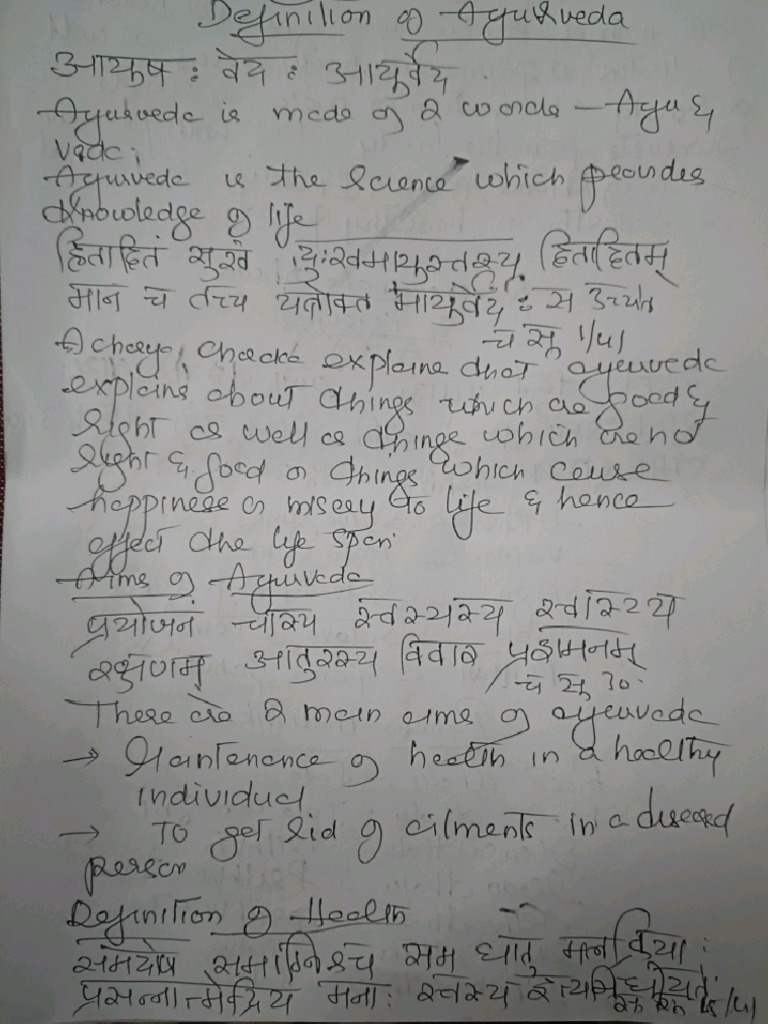 Definition of Ayurveda
आयुष : वेद : आयुर्वेद
Ayurveda is made of 2 words – Ayu &
Veda.
Ayurveda is the science which provides
knowledge of life
हिताहितं सुखं दुःखमायुस्तस्य हिताहितम्
मान च तच्च यत्रोक्त मायुर्वेद : स उच्यते
च सू 1/41
Acharya Charka explains that ayurveda
explains about things which are good &
right as well as things which are not
right & good or things which cause
happiness or misery to life & hence
effect the life span.
Aims of Ayurveda
प्रयोजनं चास्य स्वस्थस्य स्वास्थ्य
रक्षणम् आतुरस्य विकार प्रशमनम्
च सू 30
There are 2 main aims of ayurveda
→ Maintenance of health in a healthy
individual
→ To get rid of ailments in a diseased
person
Definition of Health
समदोष समाग्निश्च सम धातु मानक्रिया :
प्रसन्नात्मेंद्रिय मना: स्वस्थ इत्यभिधीयते